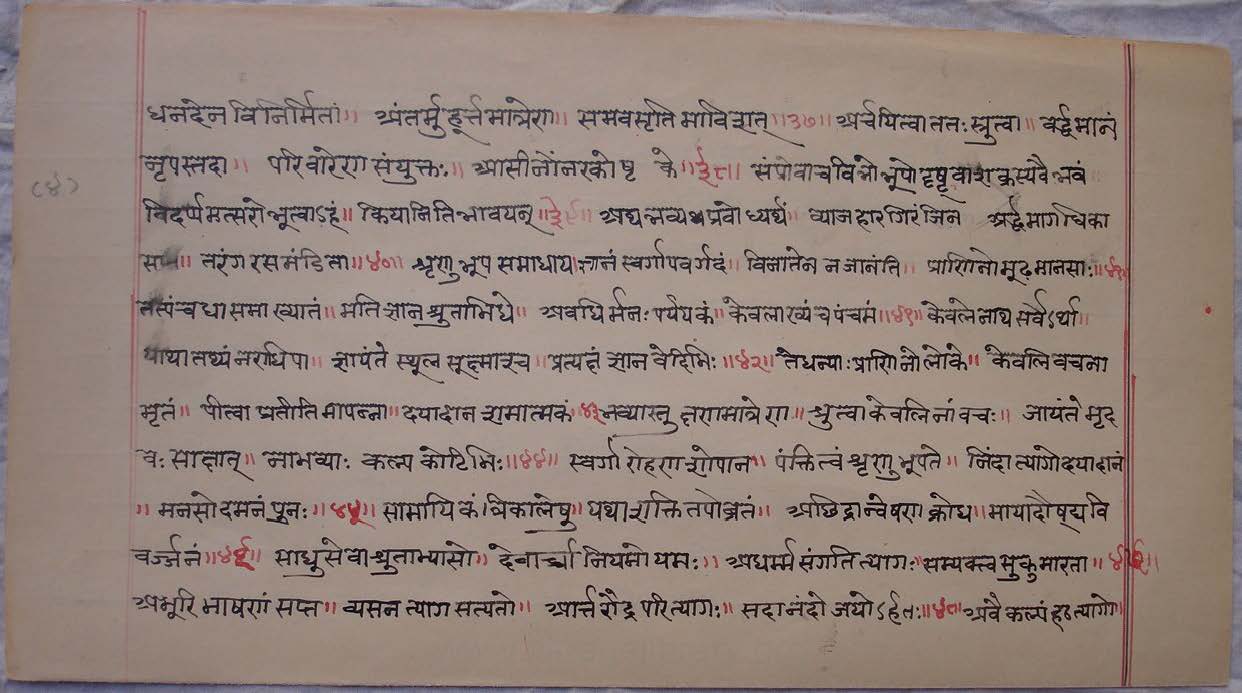 धनदेन विनिर्मितां॥ अंतर्मुहूर्त्तमात्रेण॥ समवसृतिमाविशत्॥३७॥ अर्चयित्वा ततः स्तुत्वा॥ वर्द्धमानं
नृपस्तदा॥ परिवारेण संयुक्तः॥ आसीनों नरकोष्टके॥३८॥ संप्रोवाच विभो भूपो दृष्ट्वा शक्रस्य वैभवं
विदर्प्पमत्सरो भूत्वाऽहं॥ कियानिति भावयन्॥३९॥ अथ भव्यप्रबोध्यर्थं व्याजहार गिरं जिन अर्द्धमागधिका
सप्त॥ तरंगरसमंडिता॥४०॥ श्रृणु भूप समाधाय ज्ञानं स्वर्गापवर्गदं॥ विनातेन न जानंति॥ प्राणिनो मूढमानसाः॥
तत्पंचधा समाख्यातं॥ मतिज्ञान श्रुताभिधे॥ अवधिर्मनःपर्ययकं॥ केवलाख्यं च पंचमं॥४१॥ केवलेनाथ सर्वेऽर्था॥
याथातथ्यं नराधिपा॥ ज्ञायंते स्थूल सूक्ष्माश्च॥ प्रत्यक्षं ज्ञानवेदिभिः॥४२॥ ते धन्याः प्राणिनो लोके॥ केवलिवचना
मृतं॥ पीत्वा प्रतीतिमापन्ना॥ दयादान शमात्मकं॥४३ भव्यास्तु क्षणमात्रेण॥ श्रुत्वा केवलिनां वचः॥ जायंते मृद
वः साक्षात्॥ नाभव्याः कल्पकोटिभिः॥४४॥ स्वर्गारोहण शोपान॥ पंक्तित्वं श्रृणु भूपते॥ निंदात्यागो दयादानं
॥ मनसोदमनं पुनः॥४५॥ सामायिकं त्रिकालेषु॥ यथाशक्ति तपोव्रतं॥ अछिद्रान्वेषण क्रोध॥ मायादौष्ट्य वि
वर्ज्जनं॥४६॥ साधुसेवा श्रुताभ्यासो॥ देवार्च्चा नियमो यमः॥ अधर्म्मसंगतित्यागः॥ सम्यक्त्व सुकुमारता॥
अभूरिभाषणं सप्त॥ व्यसन त्याग सत्यतो॥ आर्त्तरौद्र परित्यागः॥ सदानंदो जयोऽर्हतः॥ अवैकल्पं हठत्यागो॥